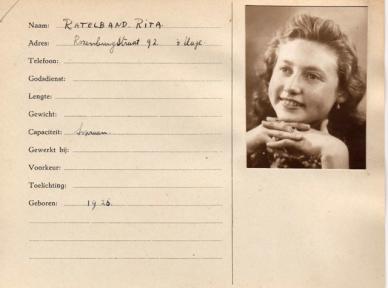 Naam: RATELBAND RITA
Adres: Rosenburgstraat 92 's Hage
Telefoon:
Godsdienst:
Lengte:
Gewicht:
Capaciteit:
Gewerkt bij:
Voorkeur:
Toelichting:
Geboren: 1926